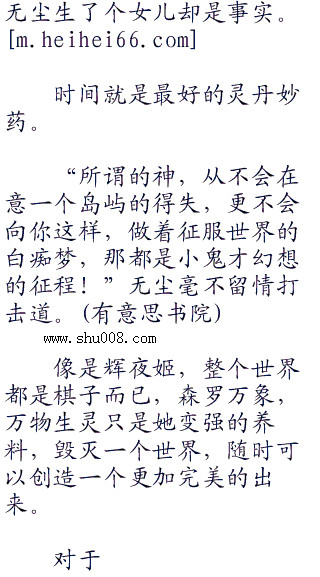 无尘生了个女儿却是事实。
[m.heihei66.com]
时间就是最好的灵丹妙
药。
“所谓的神，从不会在
意一个岛屿的得失，更不会
向你这样，做着征服世界的
白痴梦，那都是小鬼才幻想
的征程！”无尘毫不留情打
击道。(有意思书院)
www.shu008.com
像是辉夜姬，整个世界
都是棋子而已，森罗万象，
万物生灵只是她变强的养
料，毁灭一个世界，随时可
以创造一个更加完美的出
来。
对于